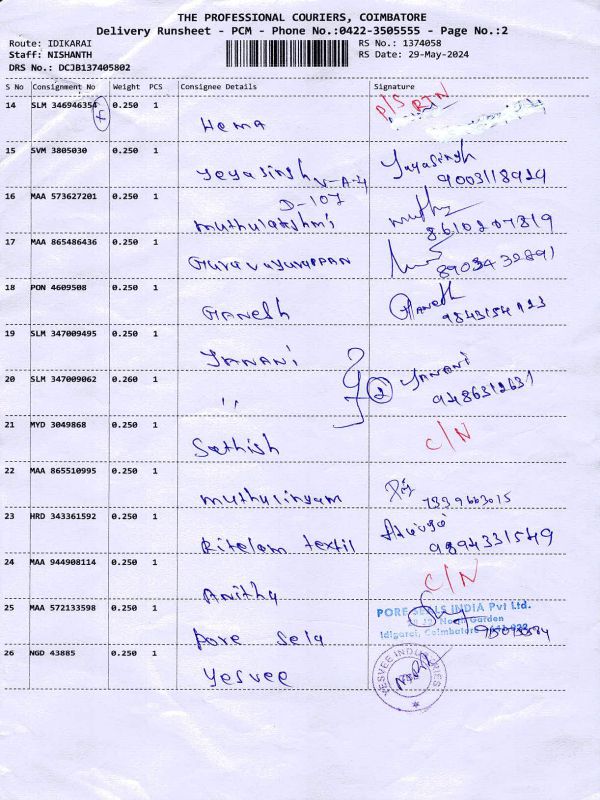 THE PROFESSIONAL COURIERS, COIMBATORE
Delivery Runsheet - PCM - Phone No.:0422-3505555 - Page No.:2
Route: IDIKARAI RS No.: 1374058
Staff: NISHANTH RS Date: 29-May-2024
DRS No.: DCJB137405802
S No Consignment No Weight PCS Consignee Details Signature
14 SLM 346946354 0.250 1 Hema P/S RTN
15 SVM 3805030 0.250 1 Jeyasingh V-A-4 Jayasingh 9003118929
16 MAA 573627201 0.250 1 D-107
Muthulakshmi Muthu 8610207819
17 MAA 865486436 0.250 1 Guruvayurappan 8903432891
18 PON 4609508 0.250 1 Ganesh Ganesh
19 SLM 347009495 0.250 1 Janani
20 SLM 347009062 0.260 1 ,, 2 Janani 9486312631
21 MYD 3049868 0.250 1 Sathish C/N
22 MAA 865510995 0.250 1 7339663015
23 HRD 343361592 0.250 1 Ritelam textil 9894331549
24 MAA 944908114 0.250 1 Anitha C/N
25 MAA 572133598 0.250 1 Pore Sela PORE SEALS INDIA Pvt Ltd.
Garden
Idigarai, Coimbatore
26 NGD 43885 0.250 1 Yesvee YESVEE INDUSTRIES